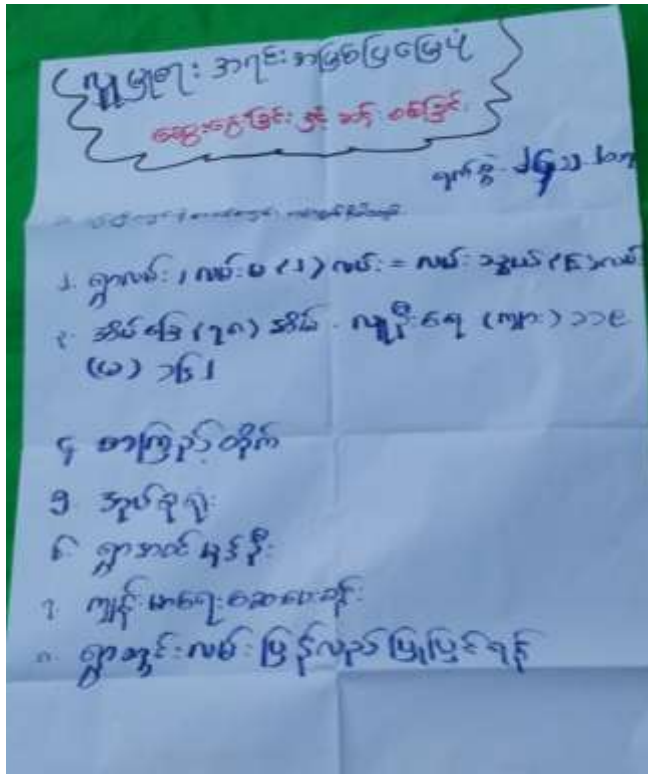 လူမှုရေး အရင်းအမြစ်ပြမြေပုံ
ဆွေးနွေးခြင်း နှင့် ဆန်းစစ်ခြင်း
ရက်စွဲ
၂. ရွာလမ်း၊ လမ်းမ (၁) လမ်း = လမ်းသွယ် လမ်း
၃. အိမ်ခြေ (၇၈) အိမ် - လူဦးရေ (ကျား) ၁၁၉
(မ) ၁၆၂
၄ စာကြည့်တိုက်
၅ အုပ်စုရုံး
၆ ရွာအဝင်မုခ်ဦး
၇ ကျန်းမာရေးဆေးပေးခန်း
၈. ရွာတွင်းလမ်းပြန်လည်ပြုပြင်ရန်